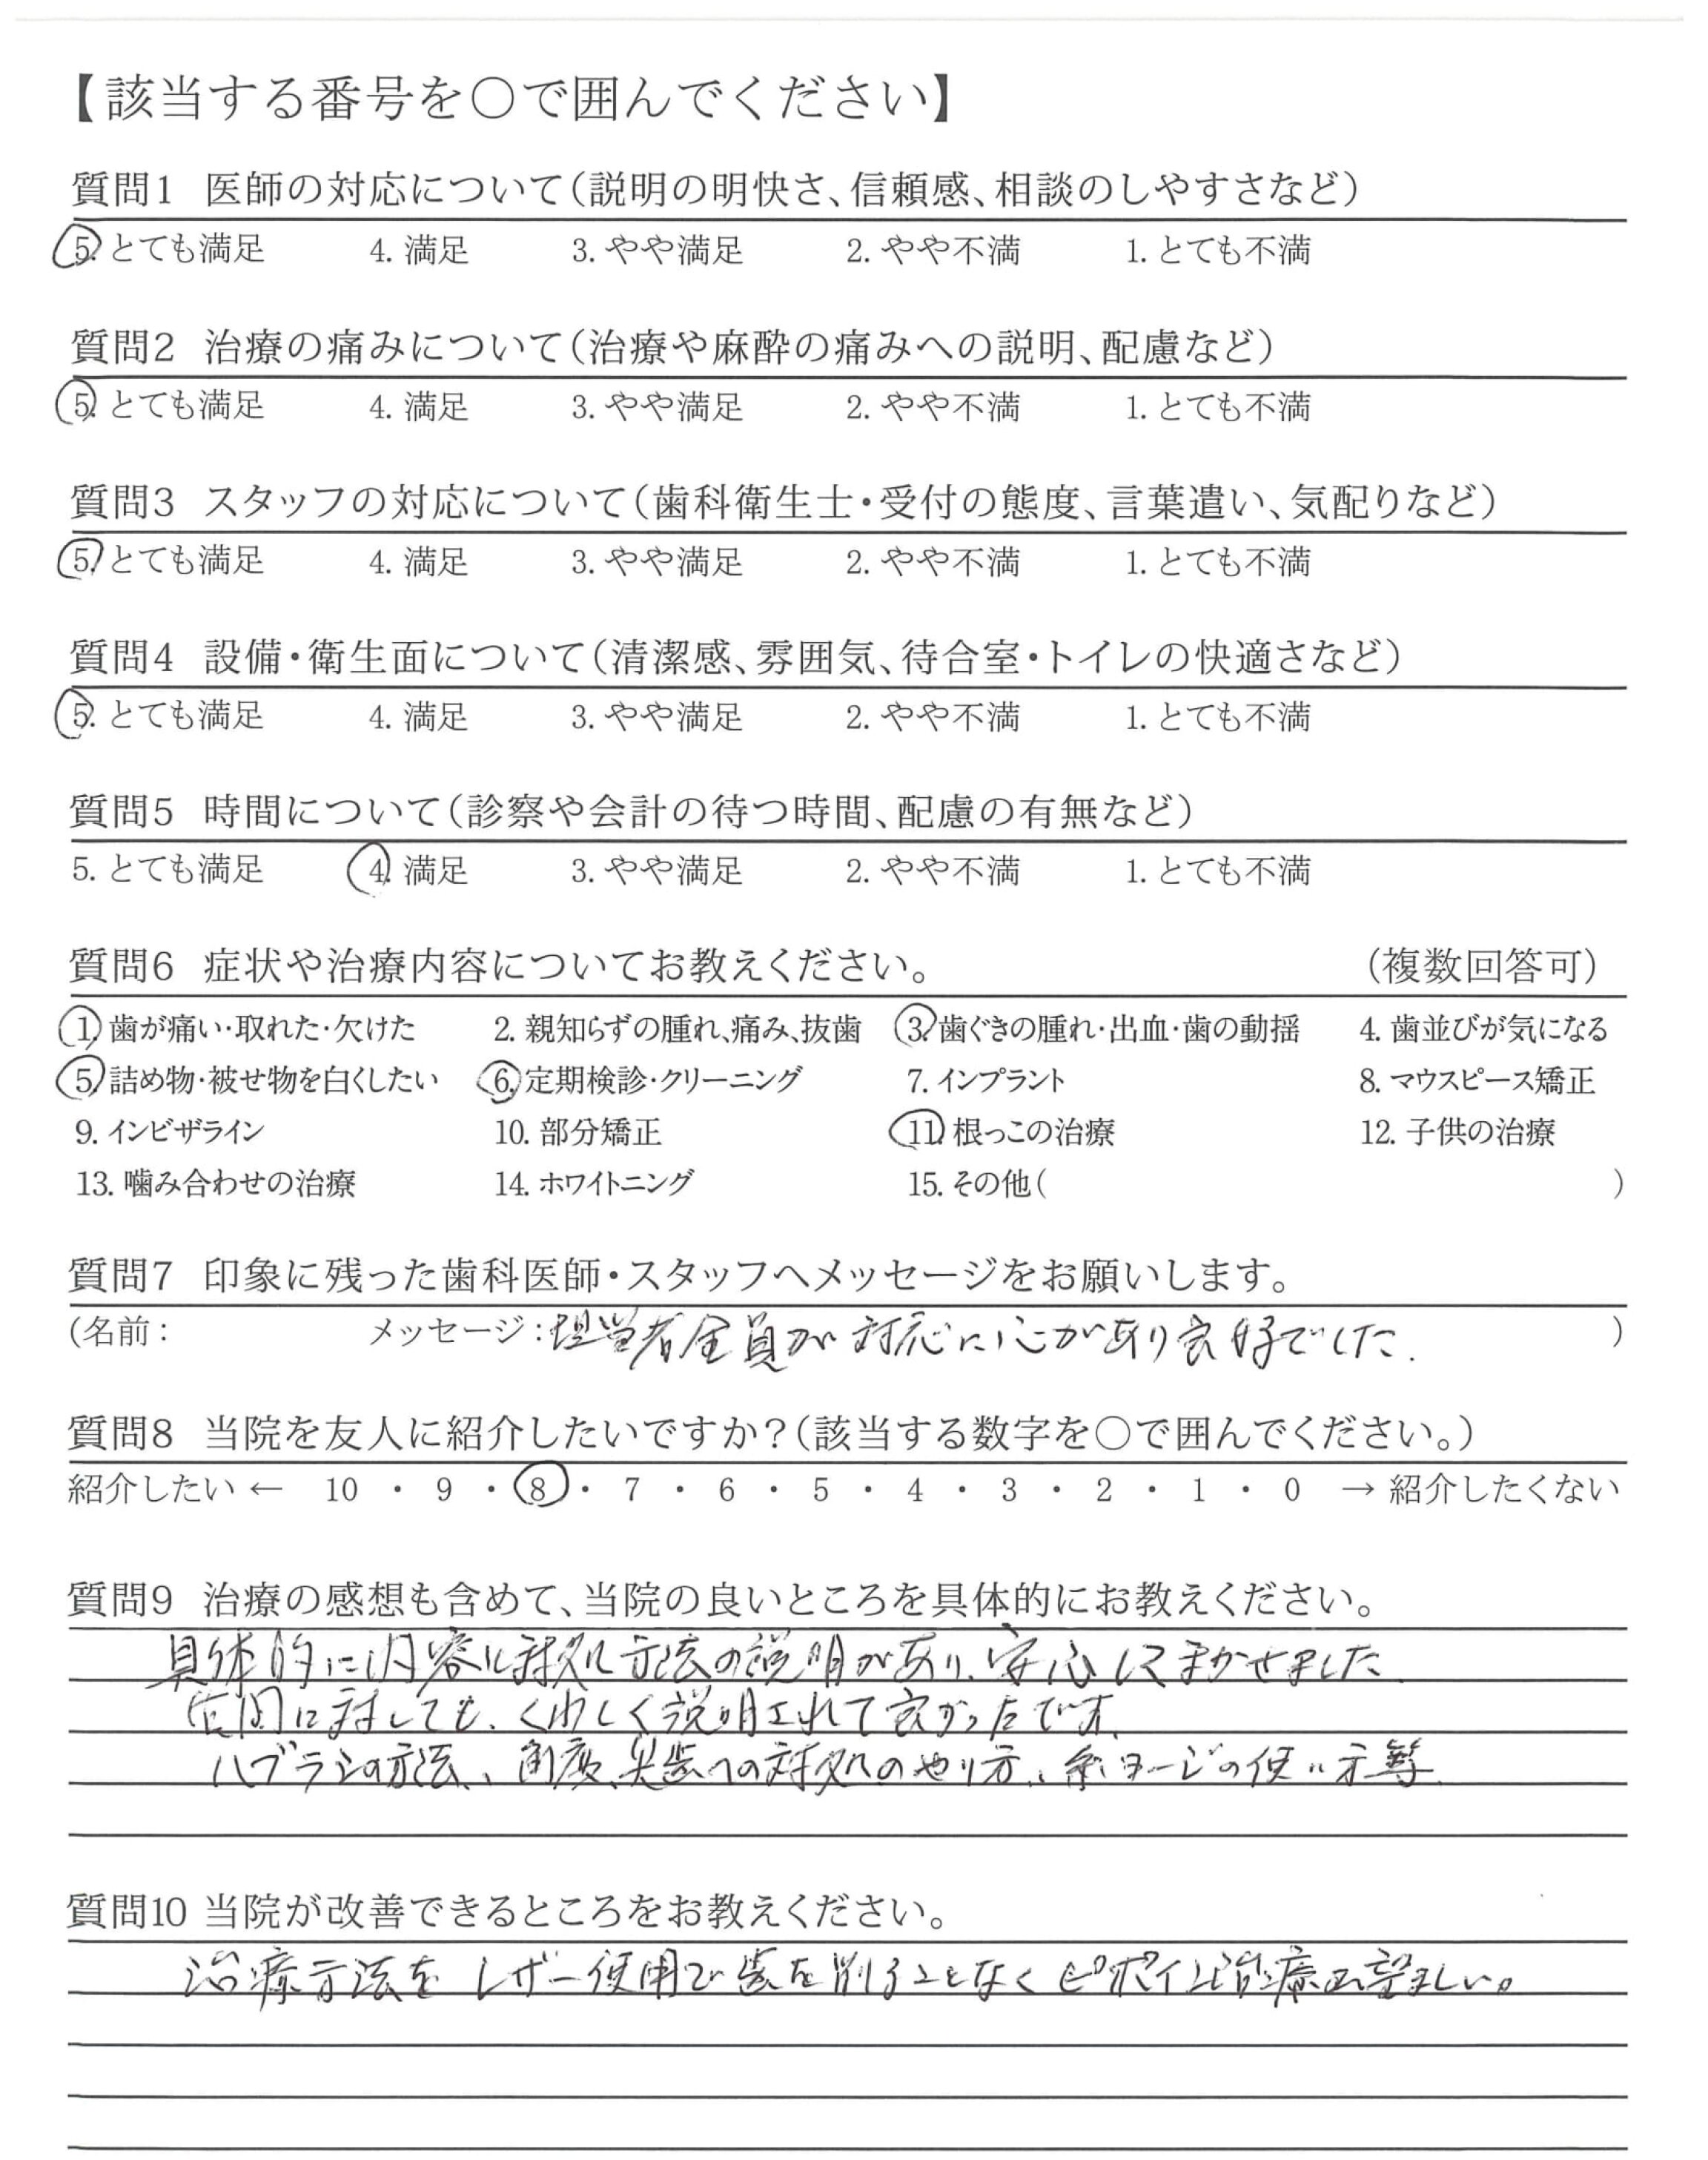 【該当する番号を○で囲んでください】
質問1 医師の対応について(説明の明快さ、信頼感、相談のしやすさなど)
5. とても満足 4. 満足 3. やや満足 2. やや不満 1. とても不満
質問2 治療の痛みについて(治療や麻酔の痛みへの説明、配慮など)
5. とても満足 4. 満足 3. やや満足 2. やや不満 1. とても不満
質問3 スタッフの対応について(歯科衛生士・受付の態度、言葉遣い、気配りなど)
5. とても満足 4. 満足 3. やや満足 2. やや不満 1. とても不満
質問4 設備・衛生面について(清潔感、雰囲気、待合室・トイレの快適さなど)
5. とても満足 4. 満足 3. やや満足 2. やや不満 1. とても不満
質問5 時間について(診察や会計の待つ時間、配慮の有無など)
5. とても満足 4. 満足 3. やや満足 2. やや不満 1. とても不満
質問6 症状や治療内容についてお教えください。 (複数回答可)
1. 歯が痛い・取れた・欠けた 2. 親知らずの腫れ、痛み、抜歯 3. 歯ぐきの腫れ・出血・歯の動揺 4. 歯並びが気になる
5. 詰め物・被せ物を白くしたい 6. 定期検診・クリーニング 7. インプラント 8. マウスピース矯正
9. インビザライン 10. 部分矯正 11. 根っこの治療 12. 子供の治療
13. 噛み合わせの治療 14. ホワイトニング 15. その他( )
質問7 印象に残った歯科医師・スタッフへメッセージをお願いします。
(名前: メッセージ:担当者全員が対応に心があり良好でした. )
質問8 当院を友人に紹介したいですか?(該当する数字を○で囲んでください。)
紹介したい ← 10 ・ 9 ・ 8 ・ 7 ・ 6 ・ 5 ・ 4 ・ 3 ・ 2 ・ 1 ・ 0 → 紹介したくない
質問9 治療の感想も含めて、当院の良いところを具体的にお教えください。
具体的に内容に対処方法の説明があり、安心してまかせました.
質問に対しても、くわしく説明されて良かったです.
ハブラシの方法、角度、への対処のやり方、糸ヨージの使い方等.
質問10 当院が改善できるところをお教えください。
治療方法を レザー使用で歯を削ることなく ピポイント治療が望ましい。